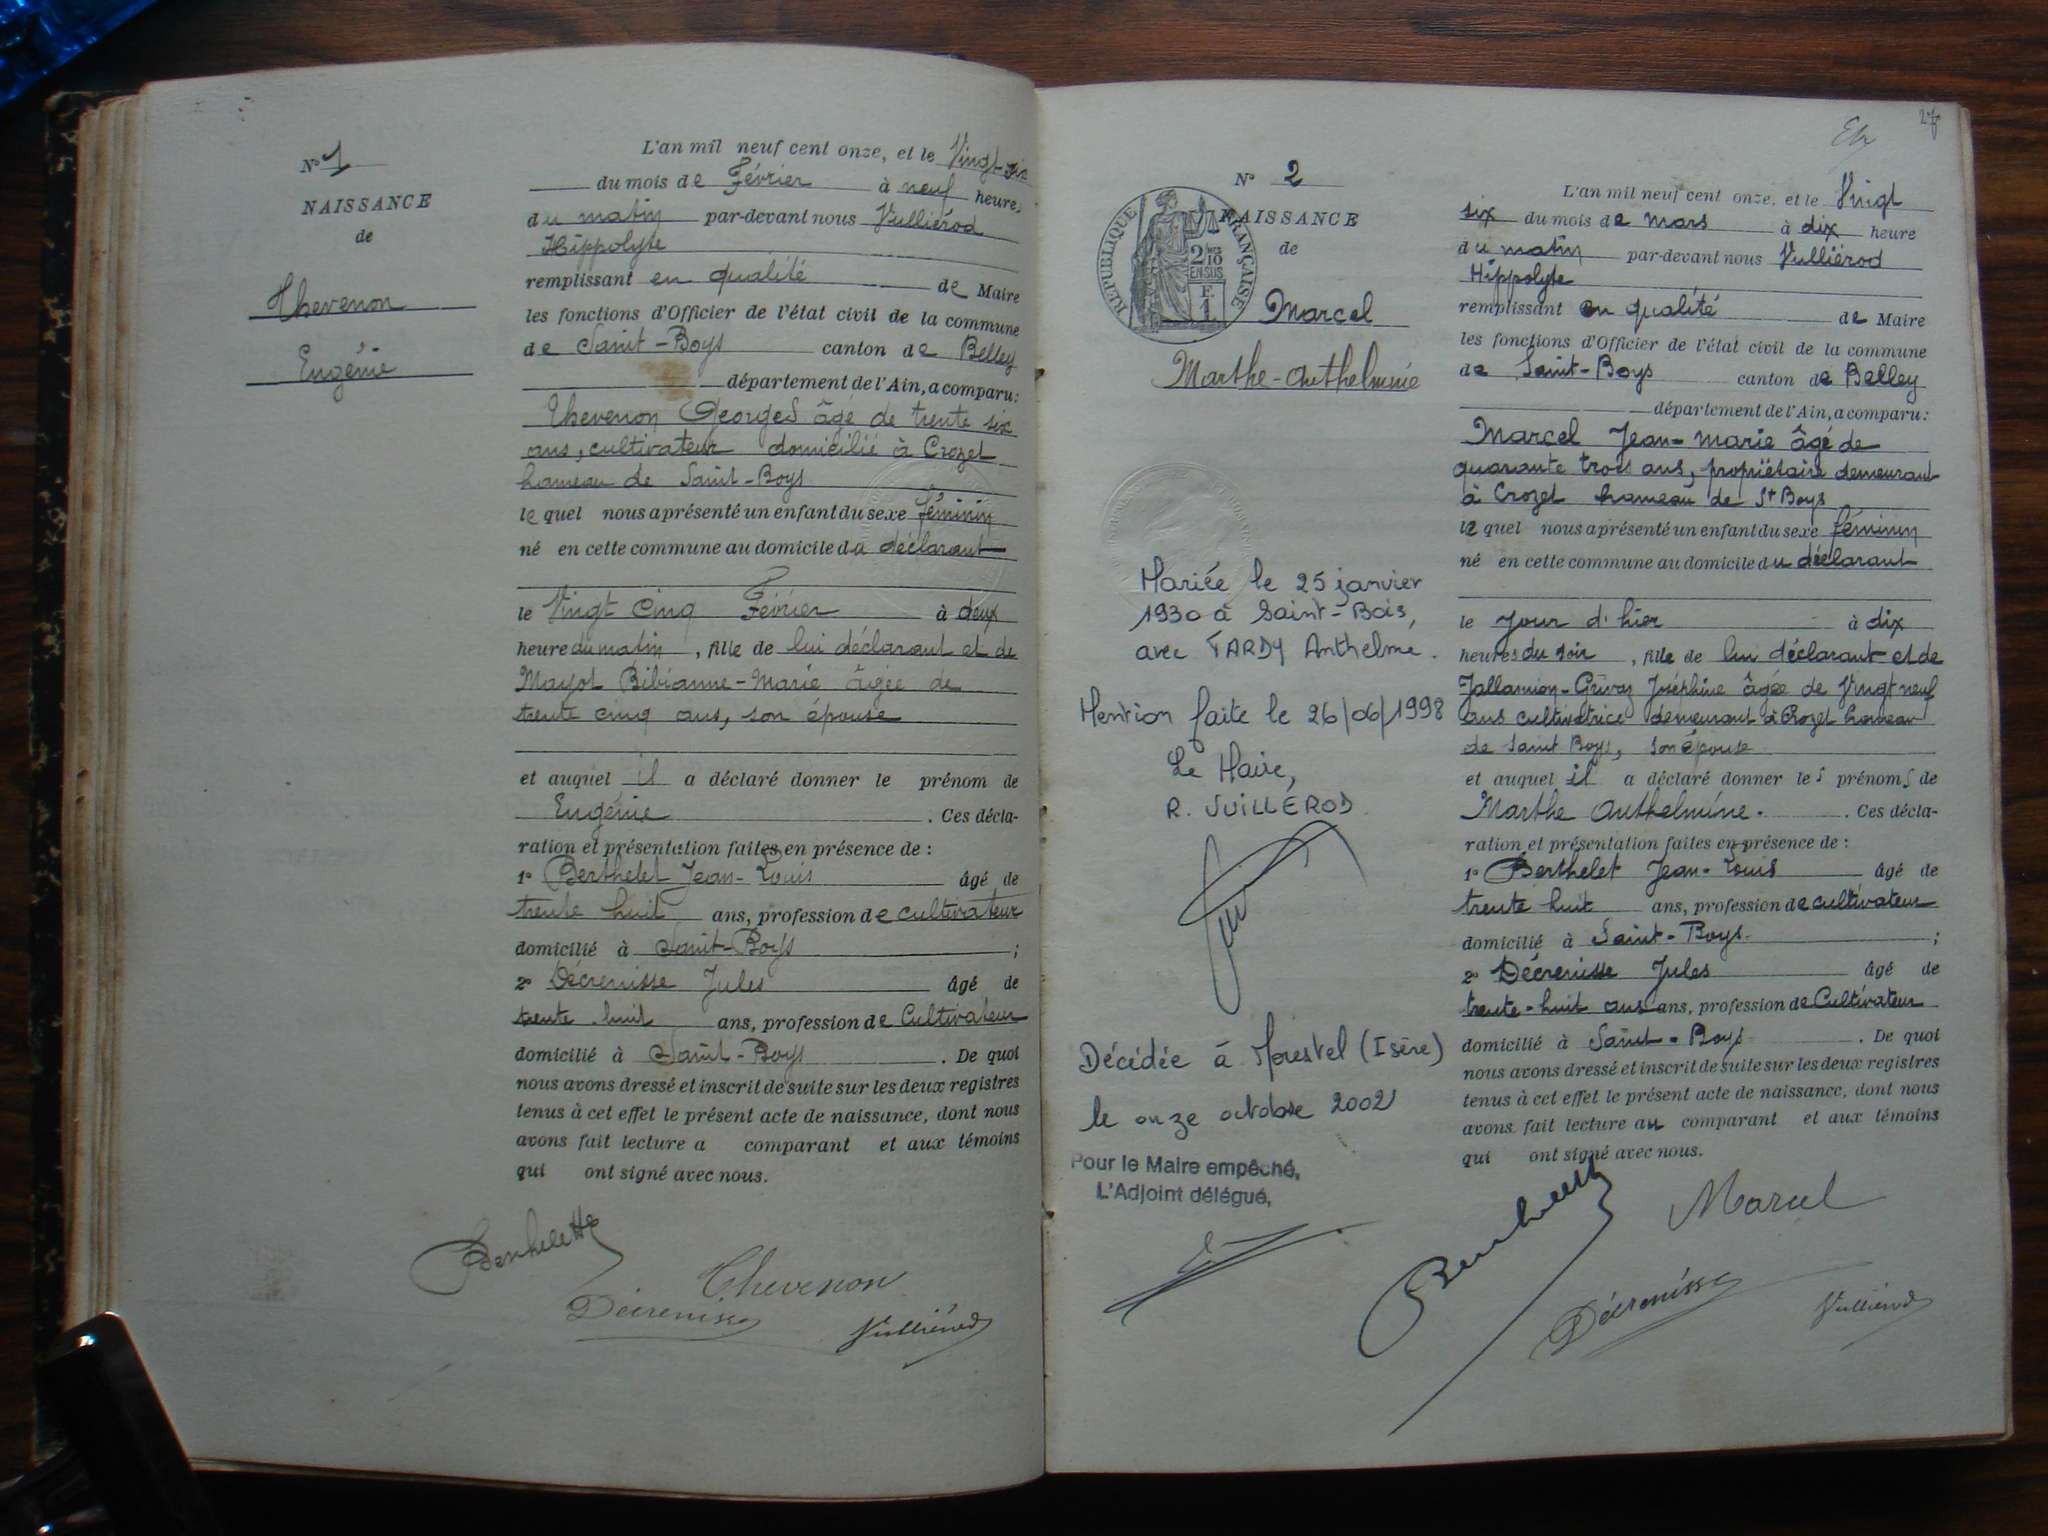 N° 1
NAISSANCE
de
Thevenon
Eugénie
L'an mil neuf cent onze, et le Vingt-six
du mois de Février à neuf heures
du matin par-devant nous Vulliérod
Hippolyte
remplissant en qualité de Maire
les fonctions d'Officier de l'état civil de la commune
de Saint-Boys canton de Belley
département de l'Ain, a comparu:
Thevenon Georges âgé de trente six
ans, cultivateur domicilié à Crozet
hameau de Saint-Boys
lequel nous a présenté un enfant du sexe féminin
né en cette commune au domicile du déclarant
le Vingt cinq Février à deux
heure du matin, fille de lui déclarant et de
Mayot Bibianne-Marie âgée de
trente cinq ans, son épouse
et auquel il a déclaré donner le prénom de
Eugénie. Ces décla-
ration et présentation faites en présence de :
1° Berthelet Jean-Louis âgé de
trente huit ans, profession de cultivateur
domicilié à Saint-Boys ;
2° Décrenisse Jules âgé de
trente huit ans, profession de Cultivateur
domicilié à Saint-Boys. De quoi
nous avons dressé et inscrit de suite sur les deux registres
tenus à cet effet le présent acte de naissance, dont nous
avons fait lecture a comparant et aux témoins
qui ont signé avec nous.
Thevenon
Décrenisse
Vulliérod
27
N° 2
NAISSANCE
de
REPUBLIQUE FRANÇAISE
2/10
EN SUS
F.
1
Marcel
Marthe-Anthelmine
Mariée le 25 janvier
1930 à Saint-Bois,
avec TARDY Anthelme.
Mention faite le 26/06/1998
Le Maire,
R. VUILLÉROD
Décédée à Morestel (Isère)
le onze octobre 2002
Pour le Maire empêché,
L'Adjoint délégué,
L'an mil neuf cent onze, et le Vingt
six du mois de mars à dix heure
du matin par-devant nous Vulliérod
Hippolyte
remplissant en qualité de Maire
les fonctions d'Officier de l'état civil de la commune
de Saint-Boys canton de Belley
département de l'Ain, a comparu:
Marcel Jean-Marie âgé de
quarante trois ans, propriétaire demeurant
à Crozet hameau de St Boys
lequel nous a présenté un enfant du sexe féminin
né en cette commune au domicile du déclarant
le jour d'hier à dix
heures du soir, fille de lui déclarant et de
Jallamion-Grivaz Joséphine âgée de Vingt neuf
ans cultivatrice demeurant à Crozet hameau
de Saint Boys, son épouse
et auquel il a déclaré donner les prénoms de
Marthe Anthelmine. Ces décla-
ration et présentation faites en présence de :
1° Berthelet Jean-Louis âgé de
trente huit ans, profession de cultivateur
domicilié à Saint-Boys ;
2° Décrenisse Jules âgé de
trente-huit ans ans, profession de Cultivateur
domicilié à Saint-Boys. De quoi
nous avons dressé et inscrit de suite sur les deux registres
tenus à cet effet le présent acte de naissance, dont nous
avons fait lecture au comparant et aux témoins
qui ont signé avec nous.
Marcel
Décrenisse
Vulliérod